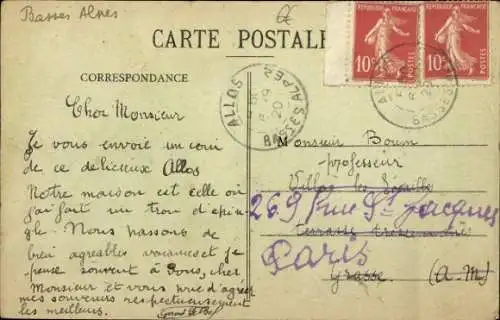 Basses Alpes
CARTE POSTALE
RÉPUBLIQUE FRANÇAISE
10c POSTES
RÉPUBLIQUE FRANÇAISE
10c POSTES
ALLOS
20
BASSES ALPES
ALLOS
20
BASSES
CORRESPONDANCE
Cher Monsieur
Je vous envoie un coin
de ce délicieux Allos
Notre maison est celle où
j'ai fait un trou d'épin
gle. Nous passons de
bien agréables vacances et je
pense souvent à vous, cher
Monsieur et vous prie d'agréer
mes souvenirs respectueusement
les meilleurs.
Monsieur
professeur
Villa les
269 rue St Jacques
Terrasse
Paris
Grasse (A-M)